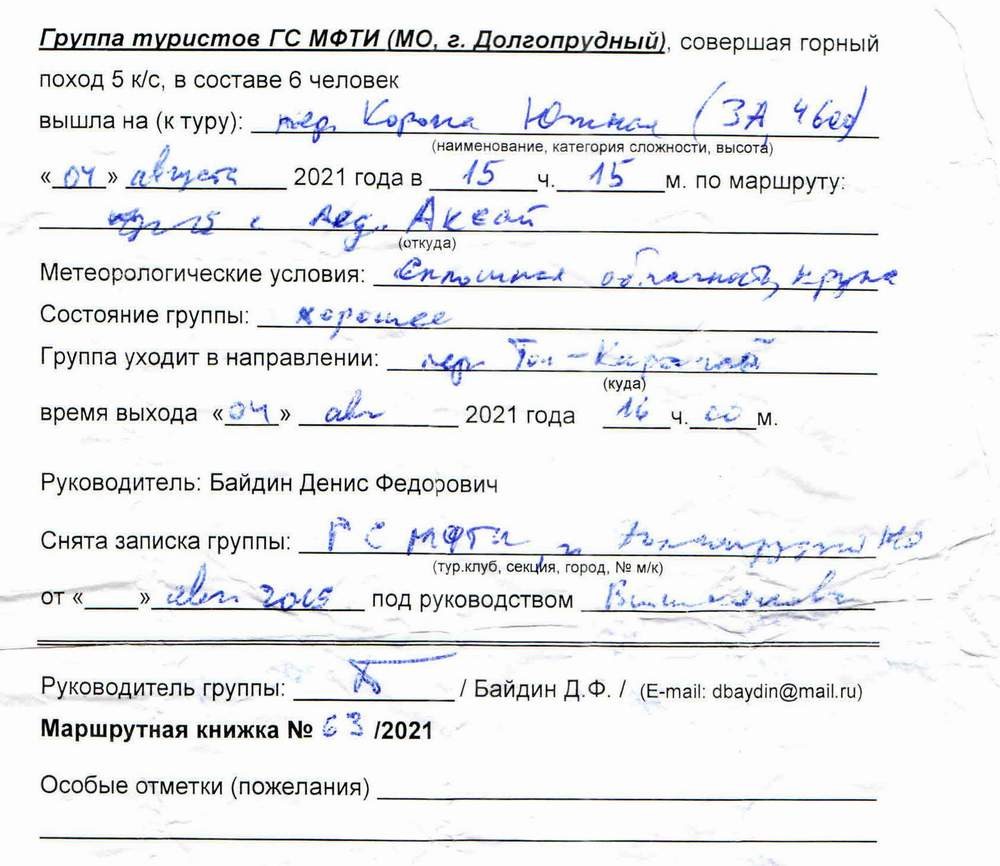 Группа туристов ГС МФТИ (МО, г. Долгопрудный), совершая горный
поход 5 к/с, в составе 6 человек
вышла на (к туру): пер. Корона Южная (3А, 4600)
(наименование, категория сложности, высота)
«04» августа 2021 года в 15 ч. 15 м. по маршруту:
с лед. Аксай
(откуда)
Метеорологические условия: сплошная облачность, крупа
Состояние группы: хорошее
Группа уходит в направлении: пер Топ-Карагай
(куда)
время выхода «04» авг 2021 года 16 ч. 00 м.
Руководитель: Байдин Денис Федорович
Снята записка группы: ГС МФТИ, г. Долгопрудный МО
(тур.клуб, секция, город, № м/к)
от «____» авг 2015 под руководством
Руководитель группы: / Байдин Д.Ф. / (E-mail: dbaydin@mail.ru)
Маршрутная книжка № 63 /2021
Особые отметки (пожелания)